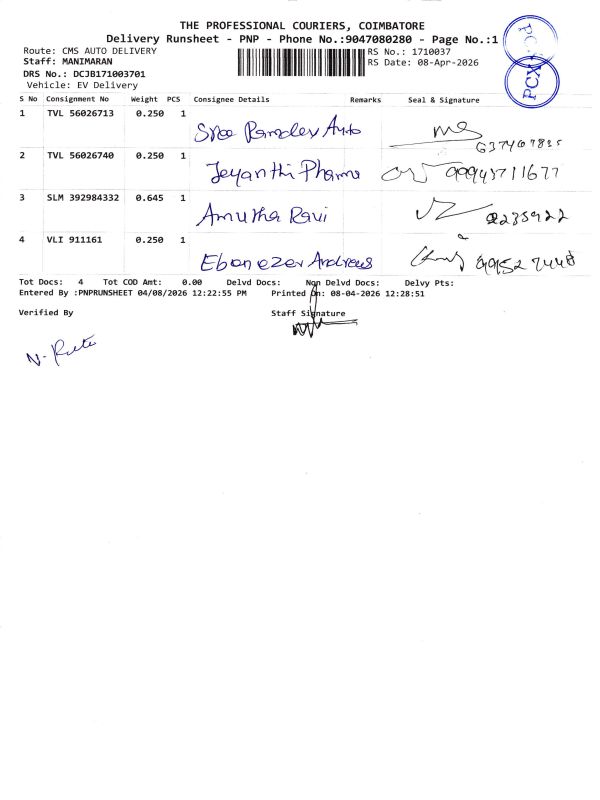 THE PROFESSIONAL COURIERS, COIMBATORE
Delivery Runsheet - PNP - Phone No.:9047080280 - Page No.:1
Route: CMS AUTO DELIVERY RS No.: 1710037
Staff: MANIMARAN RS Date: 08-Apr-2026
DRS No.: DCJB171003701
Vehicle: EV Delivery
PCX
S No Consignment No Weight PCS Consignee Details Remarks Seal & Signature
1 TVL 56026713 0.250 1 Auto
2 TVL 56026740 0.250 1 Jeyanthi Pharma 9994711677
3 SLM 392984332 0.645 1 Amutha Ravi
4 VLI 911161 0.250 1 Ebenezer Andrews
Tot Docs: 4 Tot COD Amt: 0.00 Delvd Docs: Non Delvd Docs: Delvy Pts:
Entered By :PNPRUNSHEET 04/08/2026 12:22:55 PM Printed On: 08-04-2026 12:28:51
Verified By Staff Signature